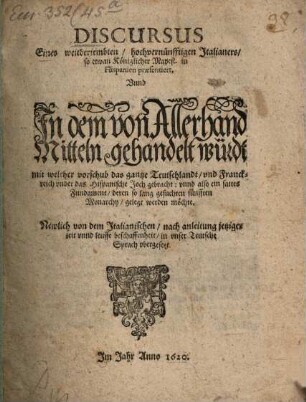 Eur. 352/45 a
38.
DISCURSUS
Eines weitberümbten / hochvernünfftigen Italianers /
so etwan Königlicher Mayest. in
Hispanien præsentiert,
Vnnd
In dem von Allerhand
Mitteln gehandelt würdt
mit welcher vorschub das gantze Teutschlandt / vnd Franck-
reich vnder das Hispanische Joch gebracht: vnnd also ein sattes
Fundament / deren so lang gesuchten fünfften
Monarchy / gelegt werden möchte.
Newlich von dem Italianischen / nach anleitung jetziger
zeit vnnd leuffe beschaffenheit / in vnser Teutsche
Sprach vbergesetzt.
Im Jahr Anno 1620.